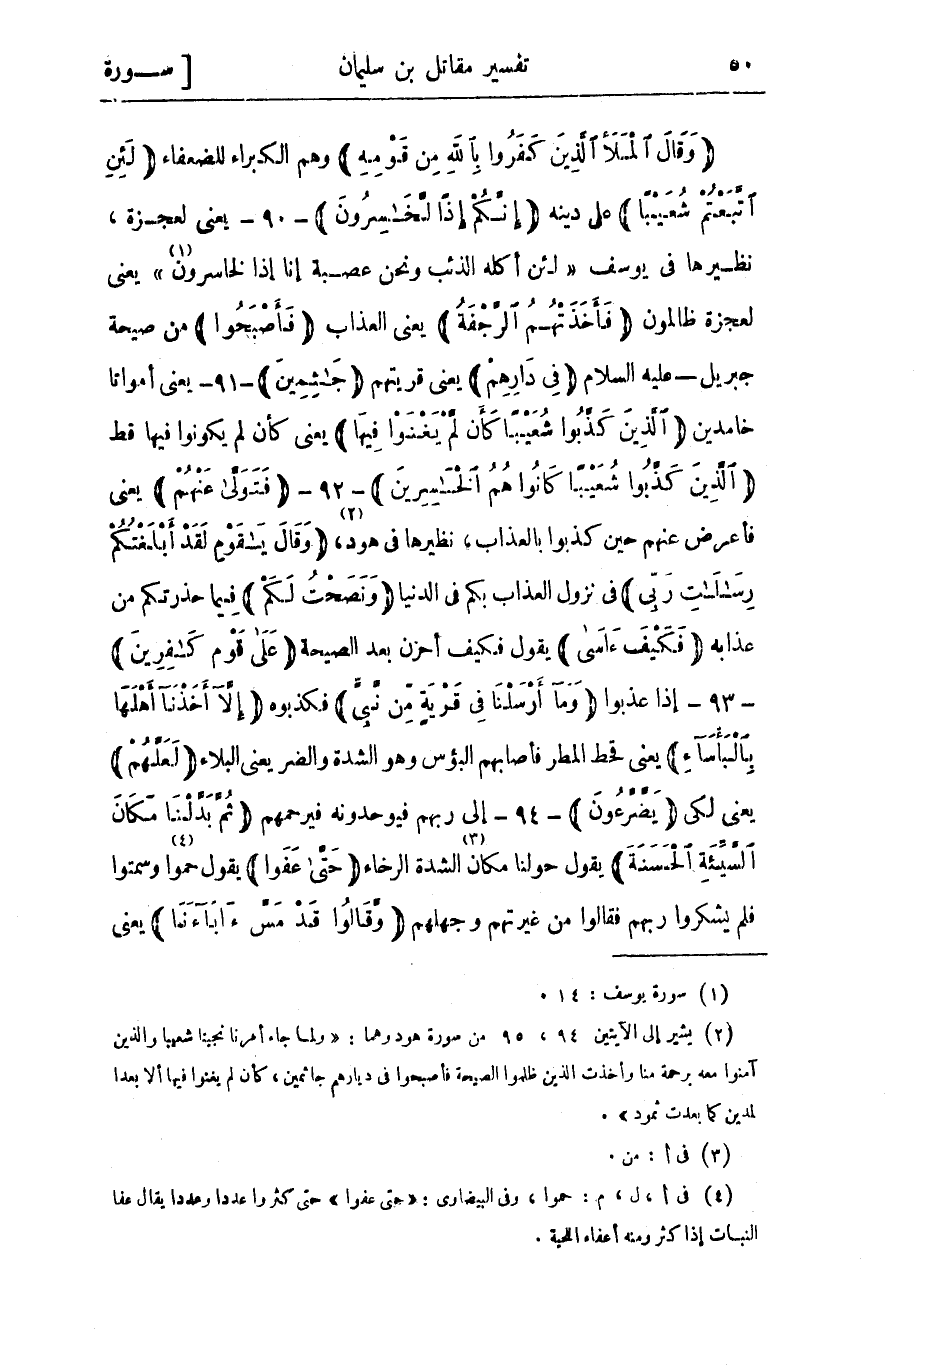 ٥٠ تفسير مقاتل بن سليمان [ سورة
﴿ وَقَالَ ٱلْمَلَأُ ٱلَّذِينَ كَفَرُوا بِٱللَّهِ مِن قَوْمِهِ ﴾ وهم الكبراء للضعفاء ﴿ لَئِنِ
ٱتَّبَعْتُمْ شُعَيْبًا ﴾ على دينه ﴿ إِنَّكُمْ إِذًا لَّخَـٰسِرُونَ ﴾ - ٩٠ - يعنى لعجزة ،
نظيرها فى يوسف « لئن أكله الذئب ونحن عصبة إنا إذا لخاسرون (١) » يعنى
لعجزة ظالمون ﴿ فَأَخَذَتْهُمُ ٱلرَّجْفَةُ ﴾ يعنى العذاب ﴿ فَأَصْبَحُوا ﴾ من صيحة
جبريل — عليه السلام ﴿ فِى دَارِهِمْ ﴾ يعنى قريتهم ﴿ جَـٰثِمِينَ ﴾ - ٩١ - يعنى أمواتا
خامدين ﴿ ٱلَّذِينَ كَذَّبُوا شُعَيْبًا كَأَن لَّمْ يَغْنَوْا فِيهَا ﴾ يعنى كأن لم يكونوا فيها قط
﴿ ٱلَّذِينَ كَذَّبُوا شُعَيْبًا كَانُوا هُمُ ٱلْخَـٰسِرِينَ ﴾ - ٩٢ - ﴿ فَتَوَلَّىٰ عَنْهُمْ ﴾ يعنى
فأعرض عنهم حين كذبوا بالعذاب ، نظيرها فى هود (٢) ، ﴿ وَقَالَ يَـٰقَوْمِ لَقَدْ أَبْلَغْتُكُمْ
رِسَـٰلَـٰتِ رَبِّى ﴾ فى نزول العذاب بكم فى الدنيا ﴿ وَنَصَحْتُ لَكُمْ ﴾ فيما حذرتكم من
عذابه ﴿ فَكَيْفَ ءَاسَىٰ ﴾ يقول فكيف أحزن بعد الصيحة ﴿ عَلَىٰ قَوْمٍ كَـٰفِرِينَ ﴾
- ٩٣ - إذا عذبوا ﴿ وَمَآ أَرْسَلْنَا فِى قَرْيَةٍ مِّن نَّبِىٍّ ﴾ فكذبوه ﴿ إِلَّآ أَخَذْنَآ أَهْلَهَا
بِٱلْبَأْسَآءِ ﴾ يعنى قحط المطر فأصابهم البؤس وهو الشدة والضر يعنى البلاء ﴿ لَعَلَّهُمْ ﴾
يعنى لكى ﴿ يَضَّرَّعُونَ ﴾ - ٩٤ - إلى ربهم فيوحدونه فيرحمهم ﴿ ثُمَّ بَدَّلْنَا مَكَانَ
ٱلسَّيِّئَةِ ٱلْحَسَنَةَ ﴾ يقول حولنا مكان (٣) الشدة الرخاء ﴿ حَتَّىٰ عَفَوا ﴾ يقول حموا (٤) وسمتوا
فلم يشكروا ربهم فقالوا من غيرتهم وجهلهم ﴿ وَّقَالُوا قَدْ مَسَّ ءَابَآءَنَا ﴾ يعنى
(١) سورة يوسف : ١٤ .
(٢) يشير إلى الآيتين ٩٤ ، ٩٥ من سورة هود وهما : « ولما جاء أمرنا نجينا شعيبا والذين
آمنوا معه برحمة منا وأخذت الذين ظلموا الصيحة فأصبحوا فى ديارهم جاثمين ، كأن لم يغنوا فيها ألا بعدا
لمدين كما بعدت ثمود » .
(٣) فى أ : من .
(٤) فى أ ، ل ، م : حموا ، وفى البيضاوى : « حتى عفوا » حتى كثروا عددا وعددا يقال عفا
النبات إذا كثر ومنه أعفاء اللحية .